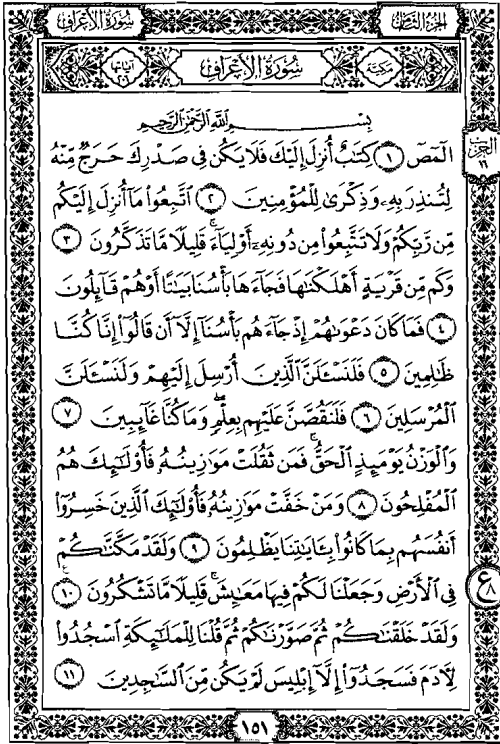 سُورَةُ الأَعْرَافِ
الجُزْءُ الثَّامِنُ
مكيّة
سُورَةُ الأَعْرَافِ
آيَاتُهَا ٢٠٦
الحزب ١٦
بِسْمِ اللَّهِ الرَّحْمَٰنِ الرَّحِيمِ
الٓمٓصٓ ١ كِتَٰبٌ أُنزِلَ إِلَيْكَ فَلَا يَكُن فِى صَدْرِكَ حَرَجٌ مِّنْهُ
لِتُنذِرَ بِهِۦ وَذِكْرَىٰ لِلْمُؤْمِنِينَ ٢ ٱتَّبِعُوا۟ مَآ أُنزِلَ إِلَيْكُم
مِّن رَّبِّكُمْ وَلَا تَتَّبِعُوا۟ مِن دُونِهِۦٓ أَوْلِيَآءَ ۗ قَلِيلًا مَّا تَذَكَّرُونَ ٣
وَكَم مِّن قَرْيَةٍ أَهْلَكْنَٰهَا فَجَآءَهَا بَأْسُنَا بَيَٰتًا أَوْ هُمْ قَآئِلُونَ
٤ فَمَا كَانَ دَعْوَىٰهُمْ إِذْ جَآءَهُم بَأْسُنَآ إِلَّآ أَن قَالُوٓا۟ إِنَّا كُنَّا
ظَٰلِمِينَ ٥ فَلَنَسْـَٔلَنَّ ٱلَّذِينَ أُرْسِلَ إِلَيْهِمْ وَلَنَسْـَٔلَنَّ
ٱلْمُرْسَلِينَ ٦ فَلَنَقُصَّنَّ عَلَيْهِم بِعِلْمٍ ۖ وَمَا كُنَّا غَآئِبِينَ ٧
وَٱلْوَزْنُ يَوْمَئِذٍ ٱلْحَقُّ ۚ فَمَن ثَقُلَتْ مَوَٰزِينُهُۥ فَأُو۟لَٰٓئِكَ هُمُ
ٱلْمُفْلِحُونَ ٨ وَمَنْ خَفَّتْ مَوَٰزِينُهُۥ فَأُو۟لَٰٓئِكَ ٱلَّذِينَ خَسِرُوٓا۟
أَنفُسَهُم بِمَا كَانُوا۟ بِـَٔايَٰتِنَا يَظْلِمُونَ ٩ وَلَقَدْ مَكَّنَّٰكُمْ
فِى ٱلْأَرْضِ وَجَعَلْنَا لَكُمْ فِيهَا مَعَٰيِشَ ۗ قَلِيلًا مَّا تَشْكُرُونَ ١٠
وَلَقَدْ خَلَقْنَٰكُمْ ثُمَّ صَوَّرْنَٰكُمْ ثُمَّ قُلْنَا لِلْمَلَٰٓئِكَةِ ٱسْجُدُوا۟
لِـَٔادَمَ فَسَجَدُوٓا۟ إِلَّآ إِبْلِيسَ لَمْ يَكُن مِّنَ ٱلسَّٰجِدِينَ ١١
ع ٨
١٥١